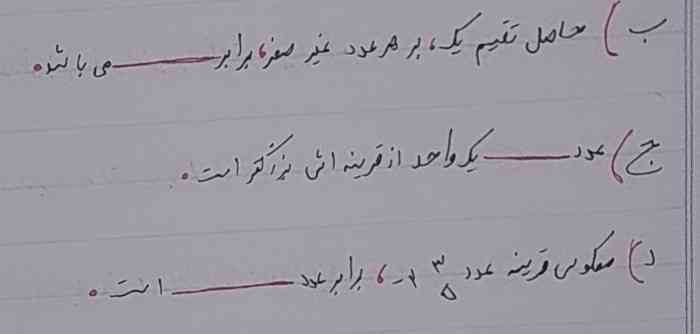 ب) حاصل تقسیم یک، بر هر عدد غیر صفر، برابر ـــــــ می باشد.
ج) عدد ـــــــ یک واحد از قرینه اش بزرگتر است.
د) معکوس قرینه عدد -۲ ۳/۵، برابر عدد ـــــــ است.